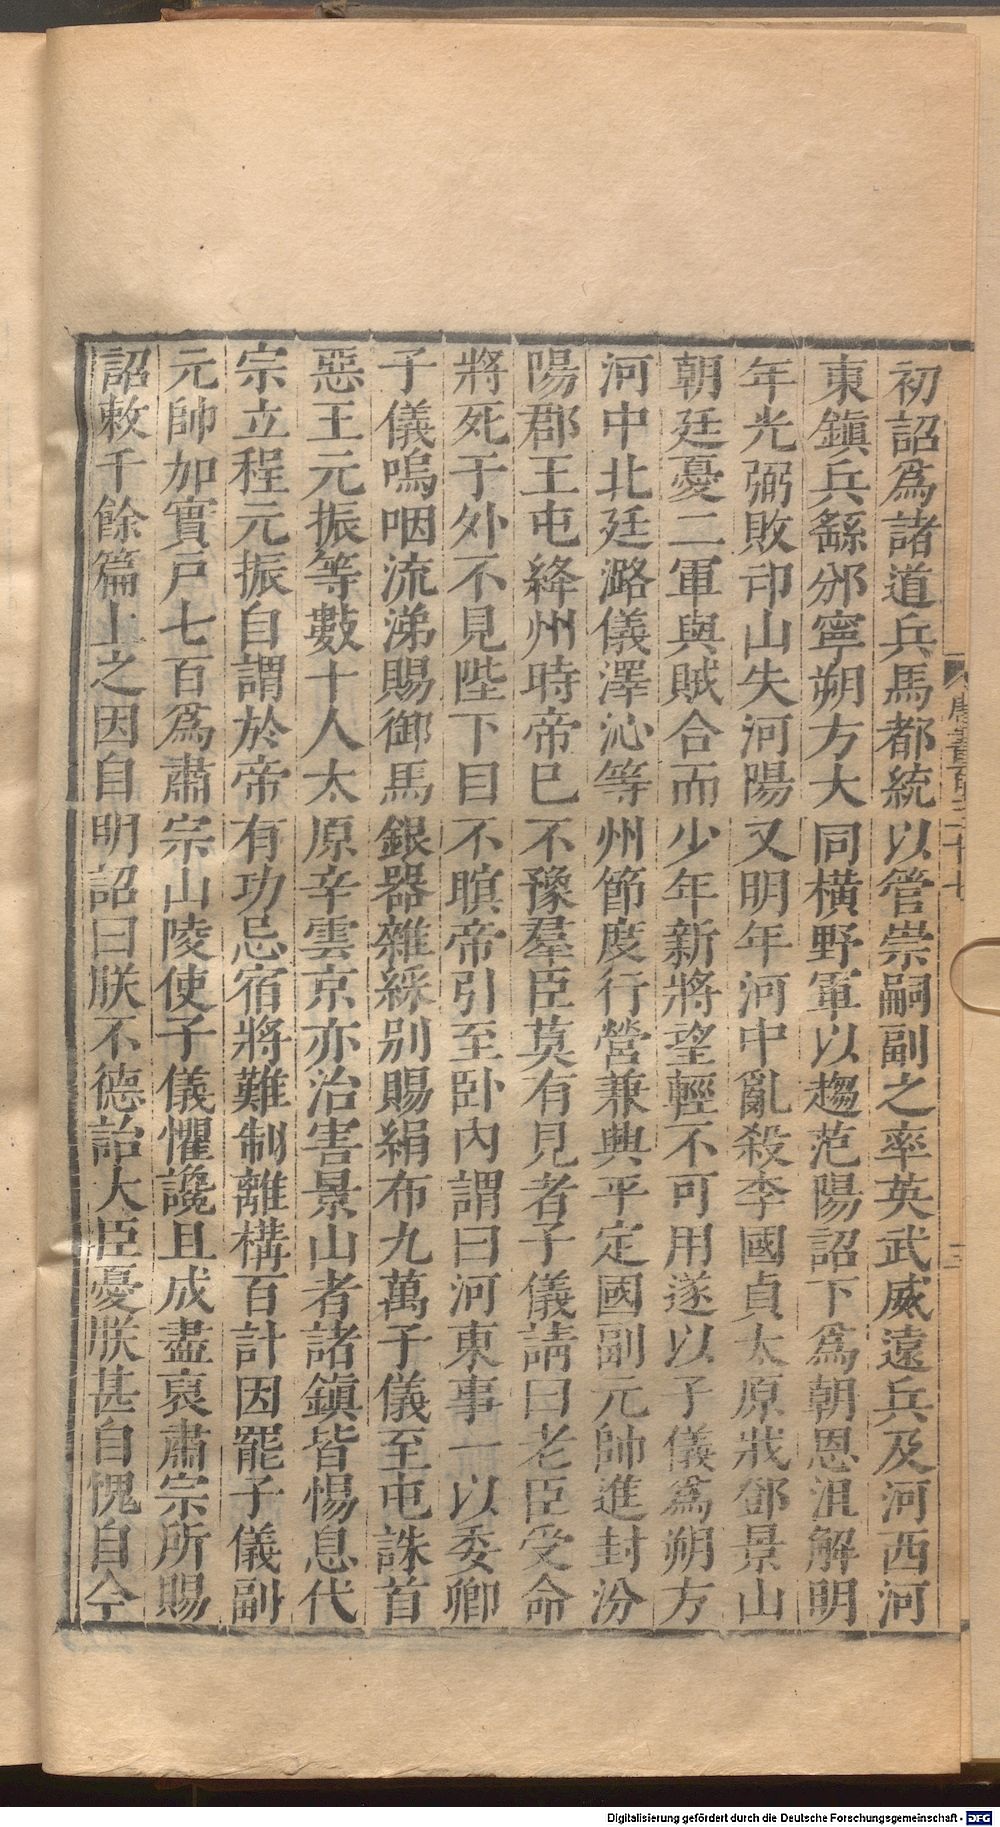 初詔爲諸道兵馬都統以管崇嗣副之率英武威遠兵及河西河
東鎭兵繇邠寧朔方大同橫野軍以趨范陽詔下爲朝恩沮解明
年光弼敗邙山失河陽又明年河中亂殺李國貞太原戕鄧景山
朝廷憂二軍與賊合而少年新將望輕不可用遂以子儀爲朔方
河中北廷潞儀澤沁等州節度行營兼興平定國副元帥進封汾
陽郡王屯絳州時帝已不豫羣臣莫有見者子儀請曰老臣受命
將死于外不見陛下目不瞑帝引至卧內謂曰河東事一以委卿
子儀嗚咽流涕賜御馬銀器雜綵別賜絹布九萬子儀至屯誅首
惡王元振等數十人太原辛雲京亦治害景山者諸鎭皆惕息代
宗立程元振自謂於帝有功忌宿將難制離構百計因罷子儀副
元帥加實戶七百爲肅宗山陵使子儀懼讒且成盡裒肅宗所賜
詔敕千餘篇上之因自明詔曰朕不德詒大臣憂朕甚自愧自今
唐書百二十七
三
Digitalisierung gefördert durch die Deutsche Forschungsgemeinschaft - DFG